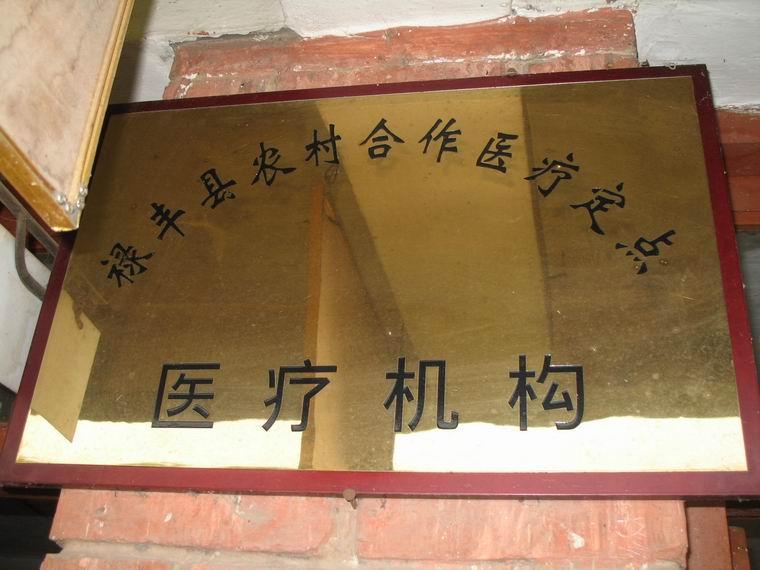 禄丰县农村合作医疗定点
医疗机构